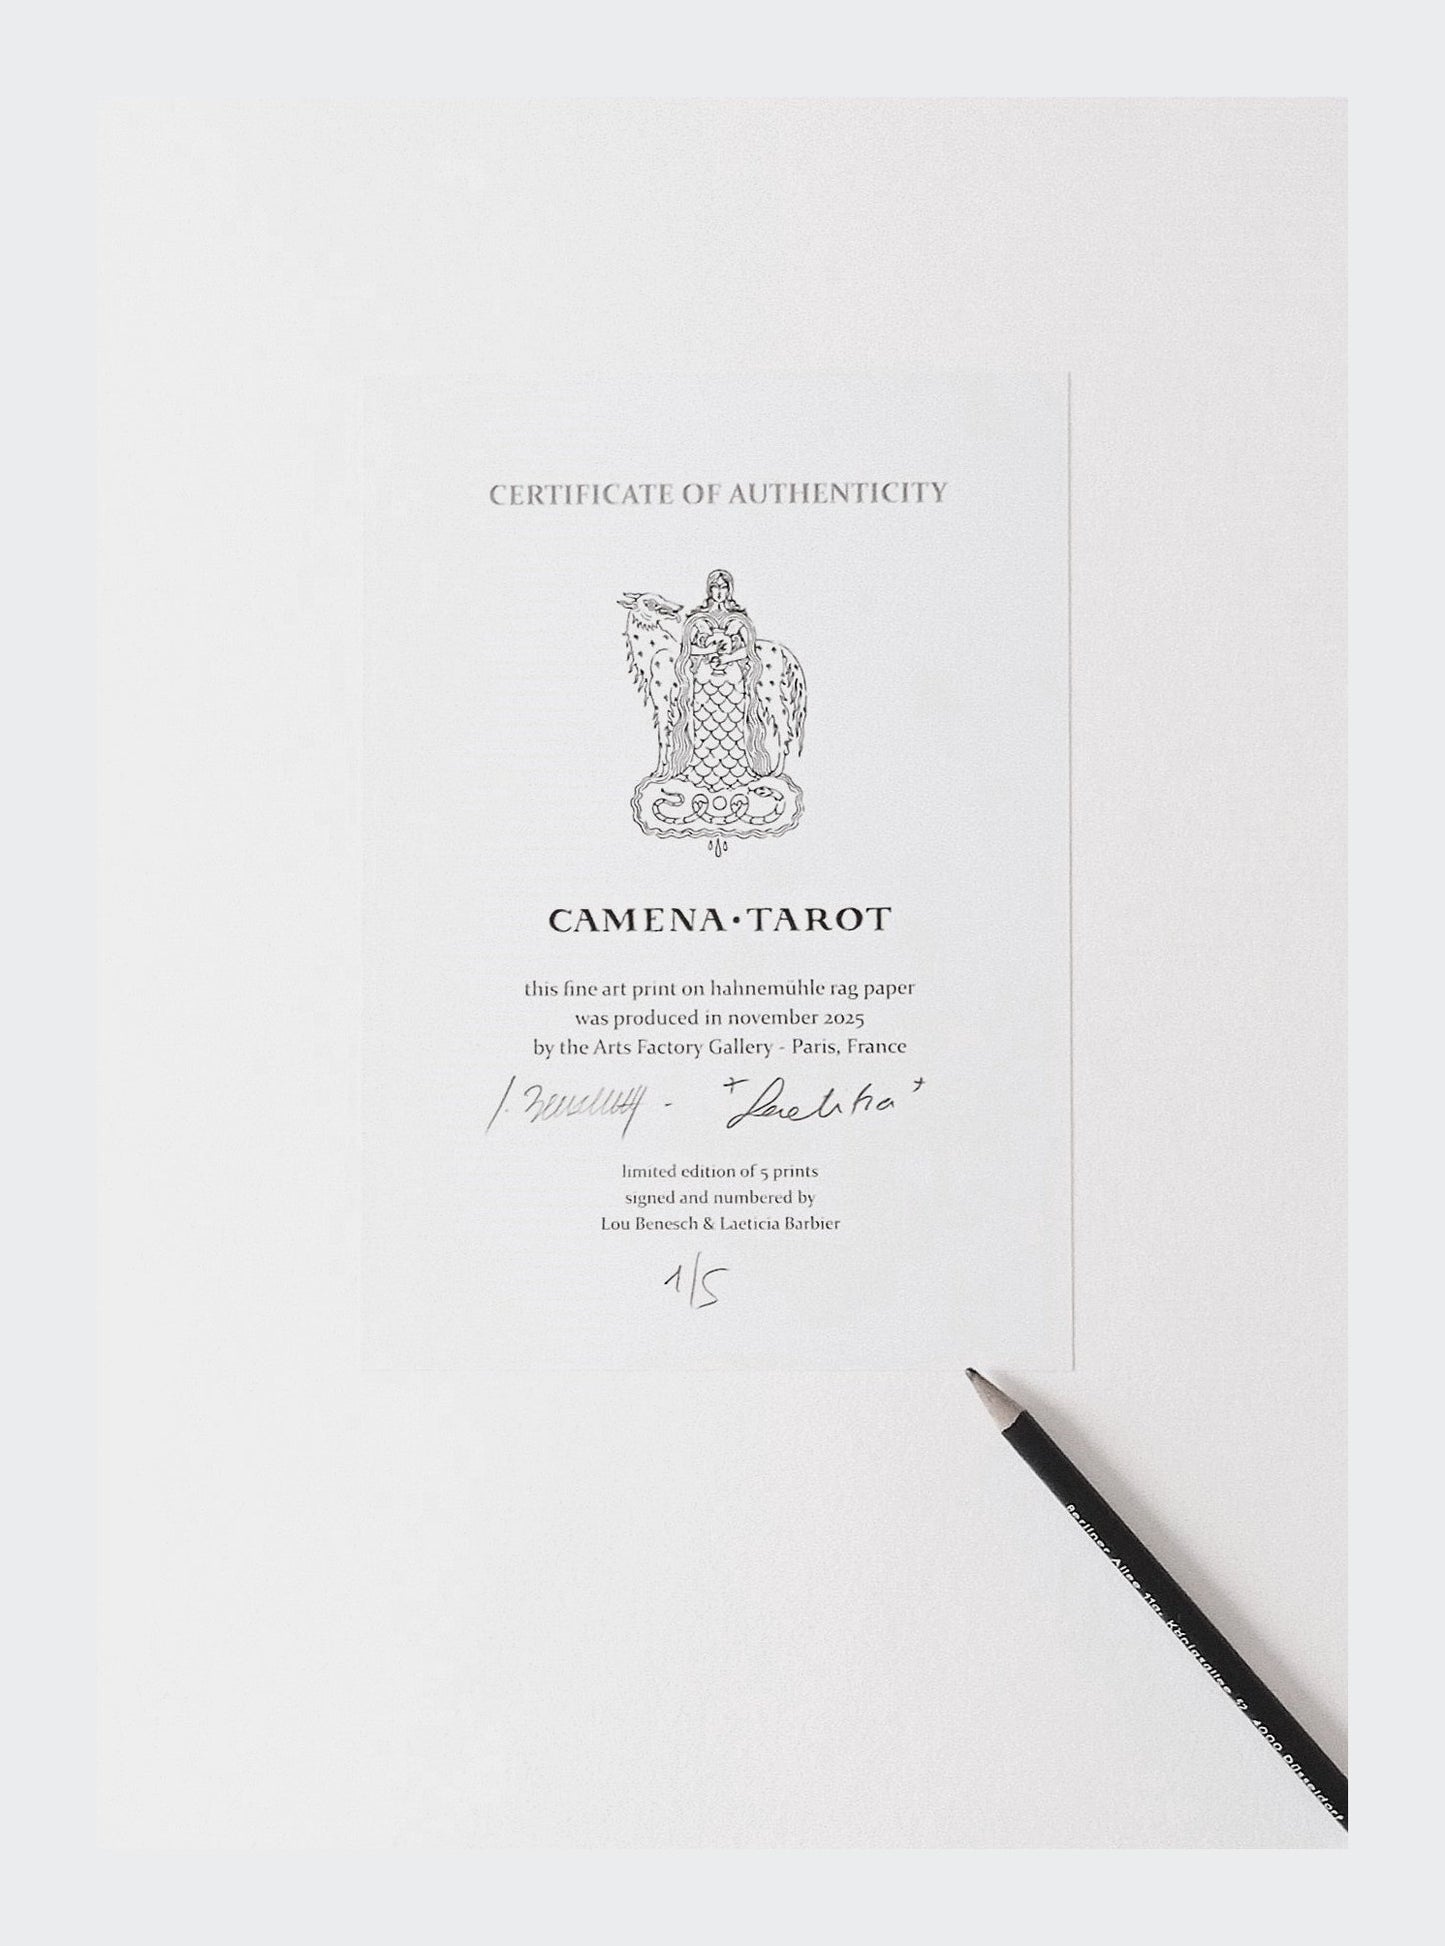 CERTIFICATE OF AUTHENTICITY
CAMENA·TAROT
this fine art print on hahnemühle rag paper
was produced in november 2025
by the Arts Factory Gallery - Paris, France
limited edition of 5 prints
signed and numbered by
Lou Benesch & Laeticia Barbier
1/5
Berliner Allee 11a, Königsallee 52, 4000 Düsseldorf